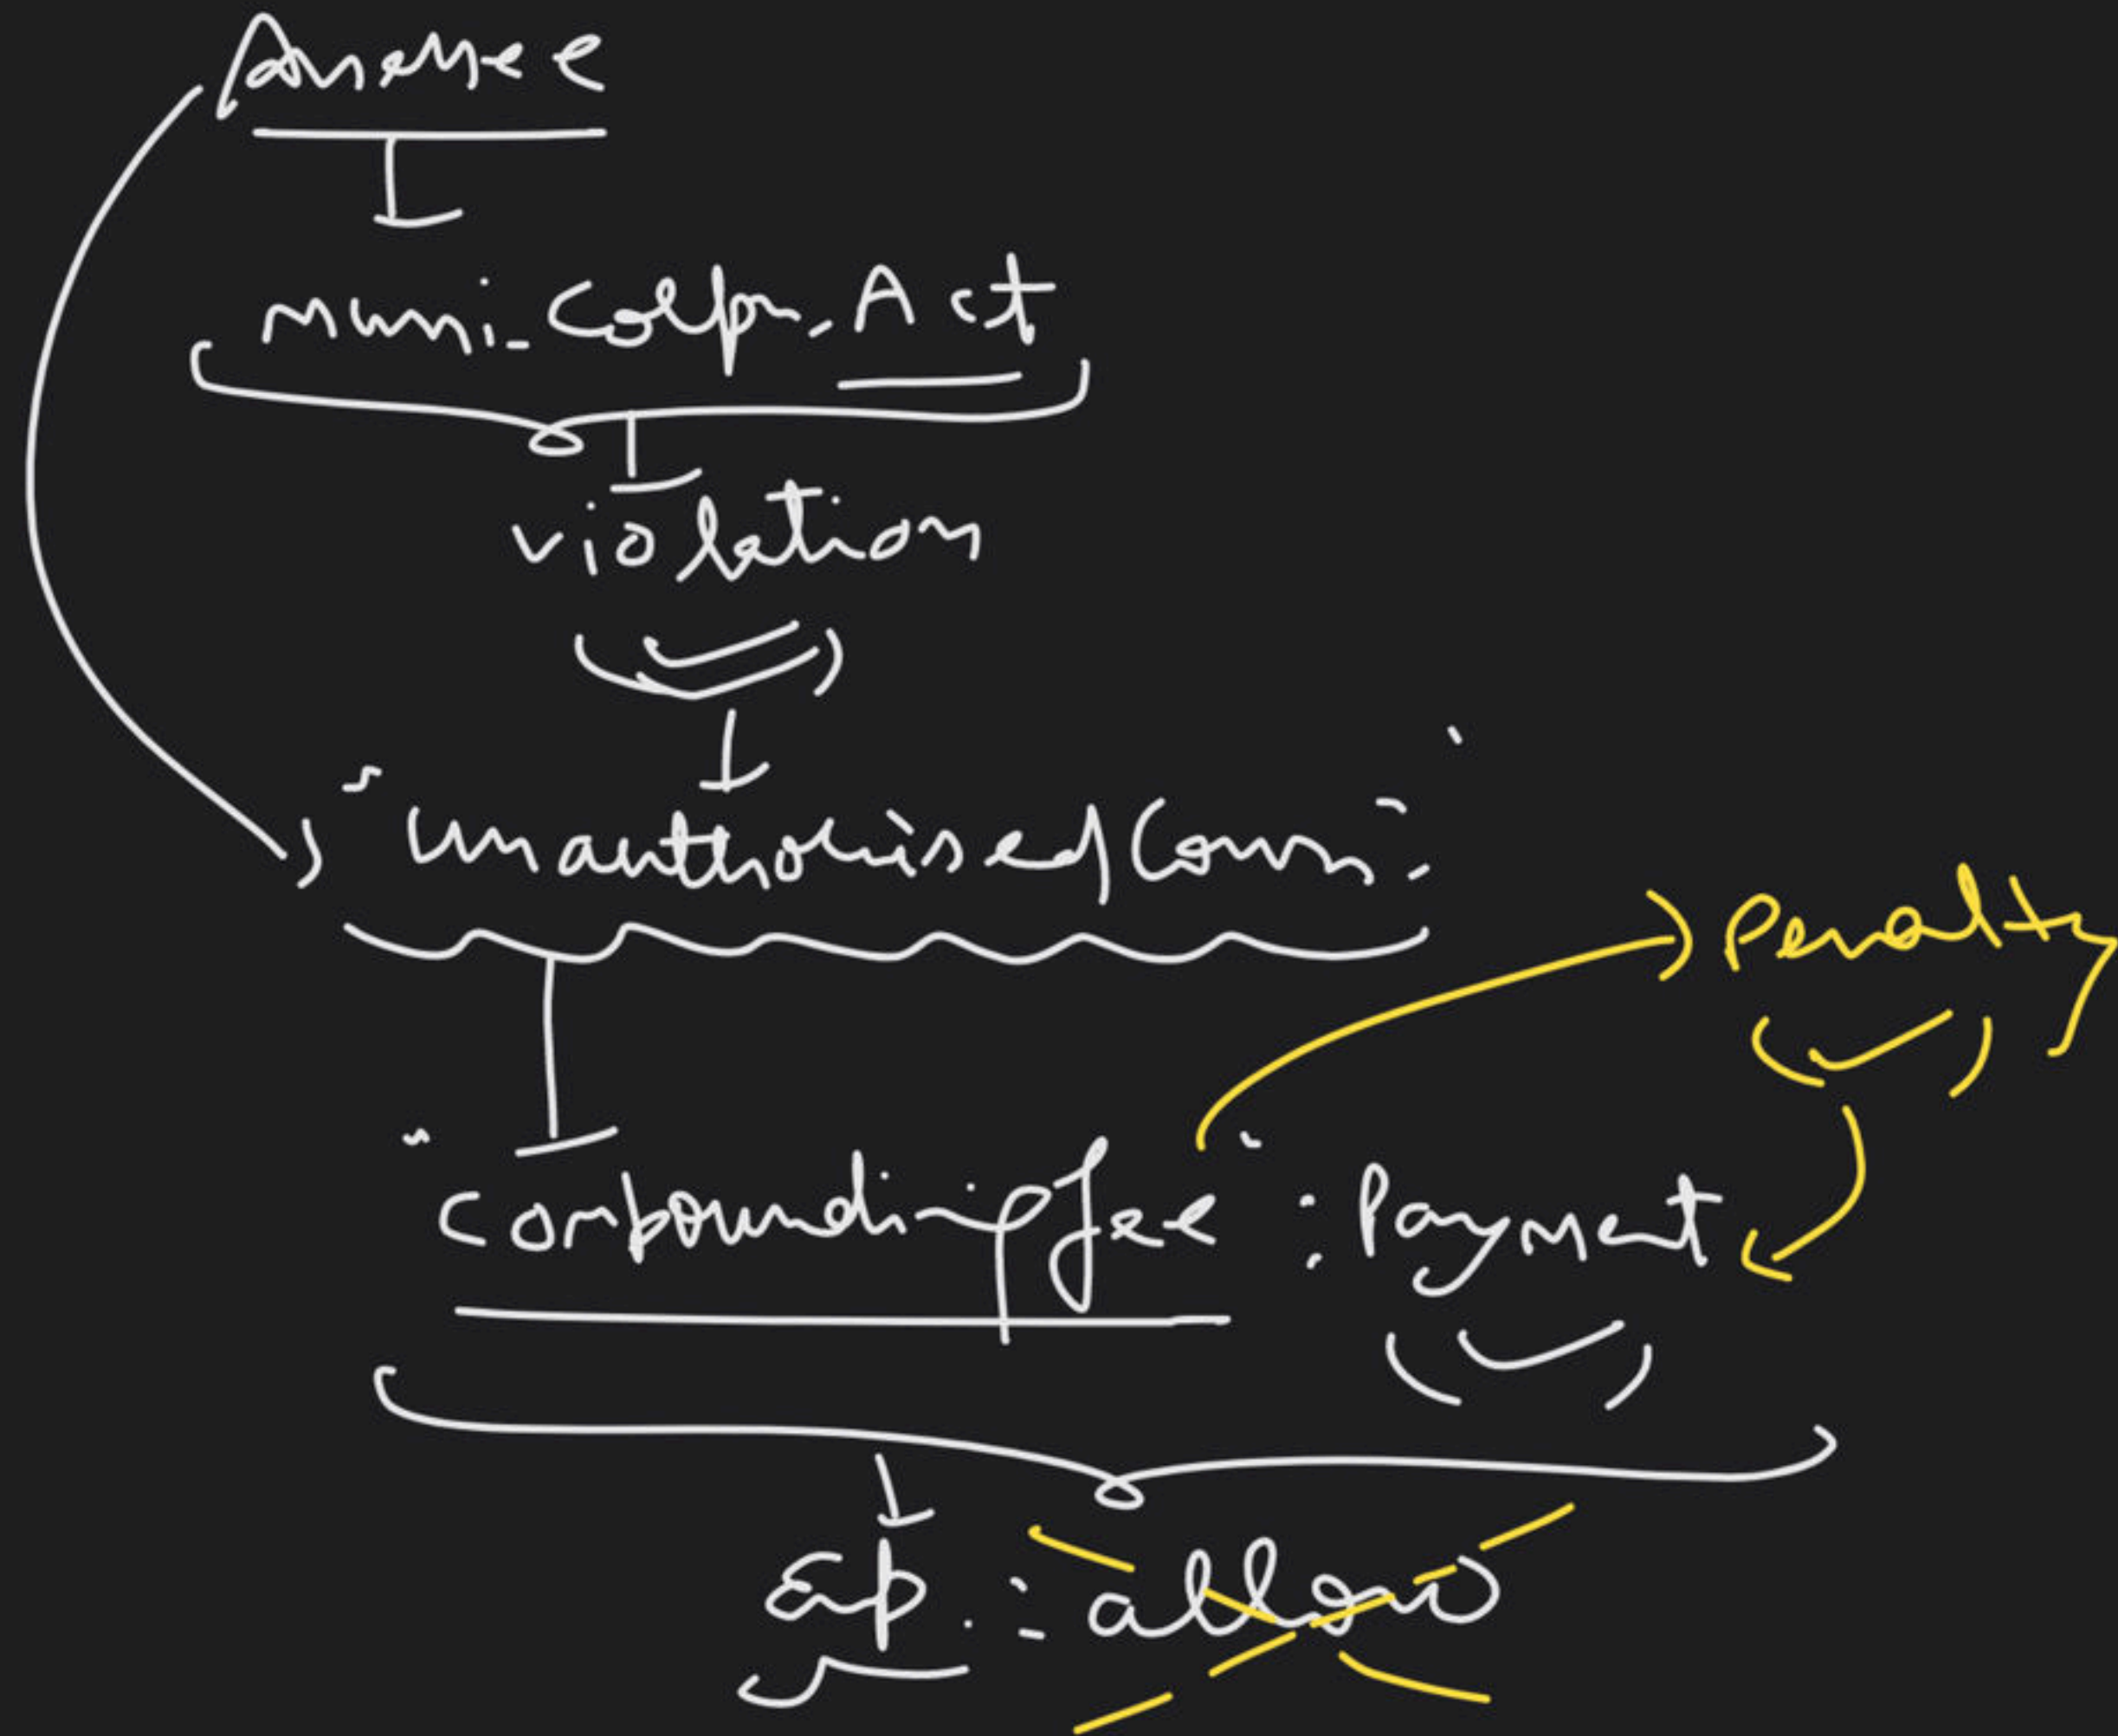 Assessee
Muni. Corpn. Act
violation
"unauthorised Conn."
Penalty
"compounding fee" : Payment
Exp. : allow